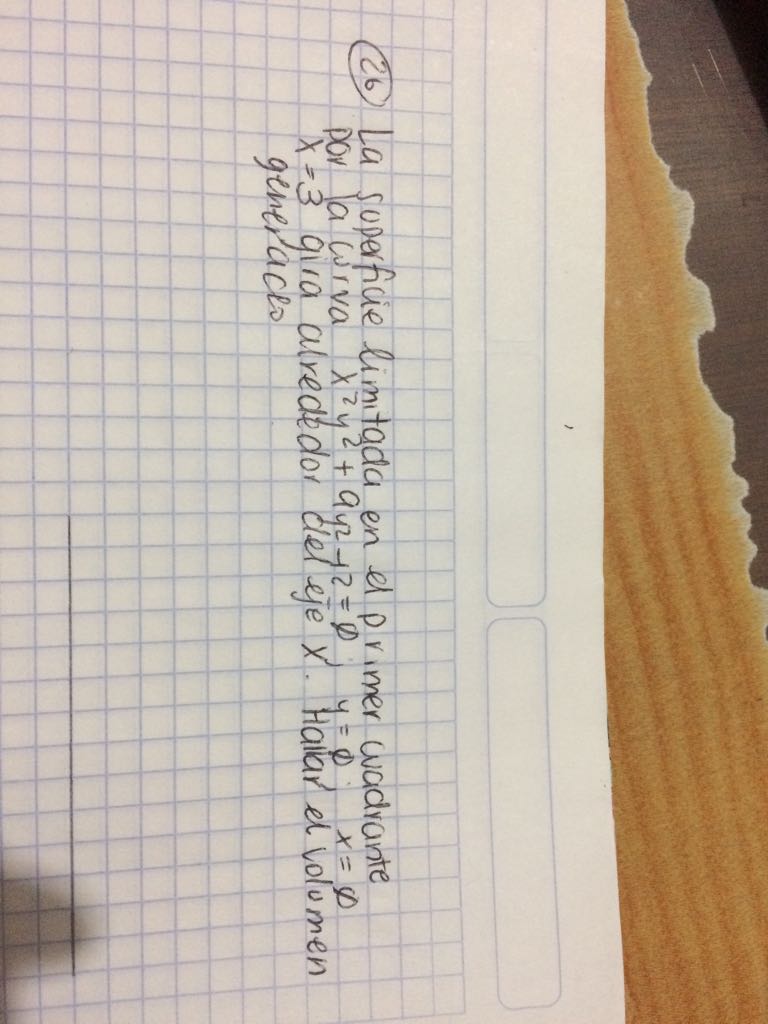 26 La superficie limitada en el primer cuadrante
por la curva x²y² + 9y² - 1² = 0; y = 0; x = 0
x = 3 gira alrededor del eje x. Hallar el volumen
generado